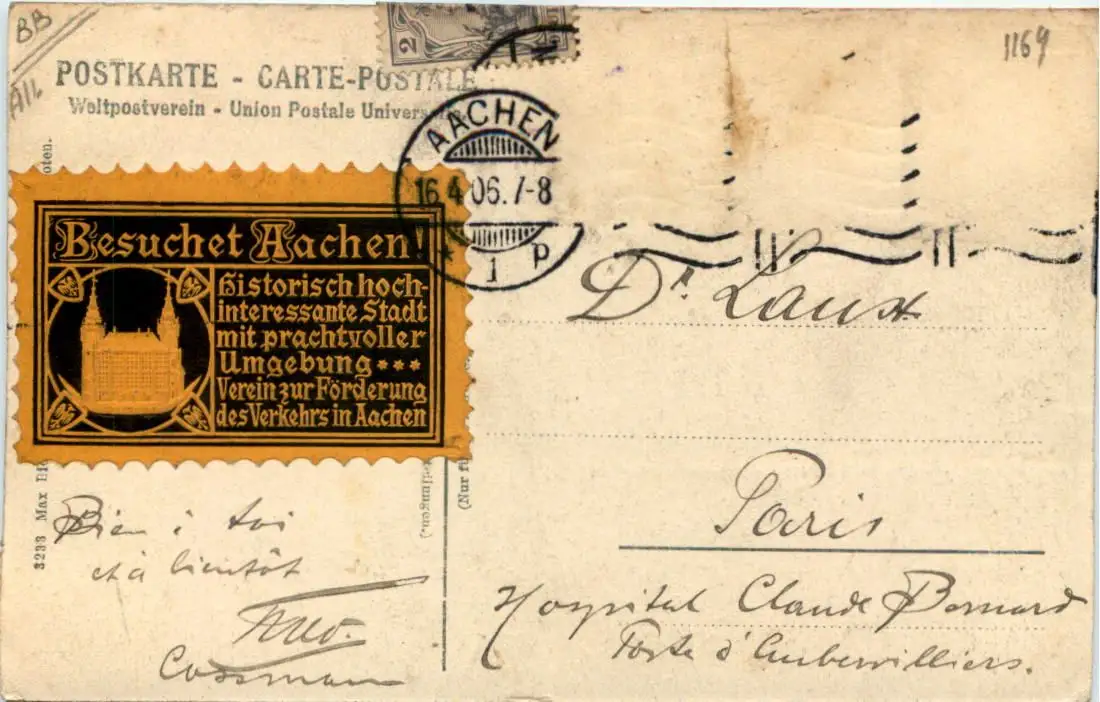 BB
A1L
1169
2
POSTKARTE - CARTE-POSTALE
Weltpostverein - Union Postale Univers
AACHEN
16.4.06.7-8
1 p
oten.
Besuchet Aachen!
Historisch hoch-
interessante Stadt
mit prachtvoller
Umgebung ***
Verein zur Förderung
des Verkehrs in Aachen
3233 Max
(Nur für
Dr.
Paris
Hospital Claude Bernard
Porte d'Aubervilliers.
Bien à toi
et à bientôt
Cossmann